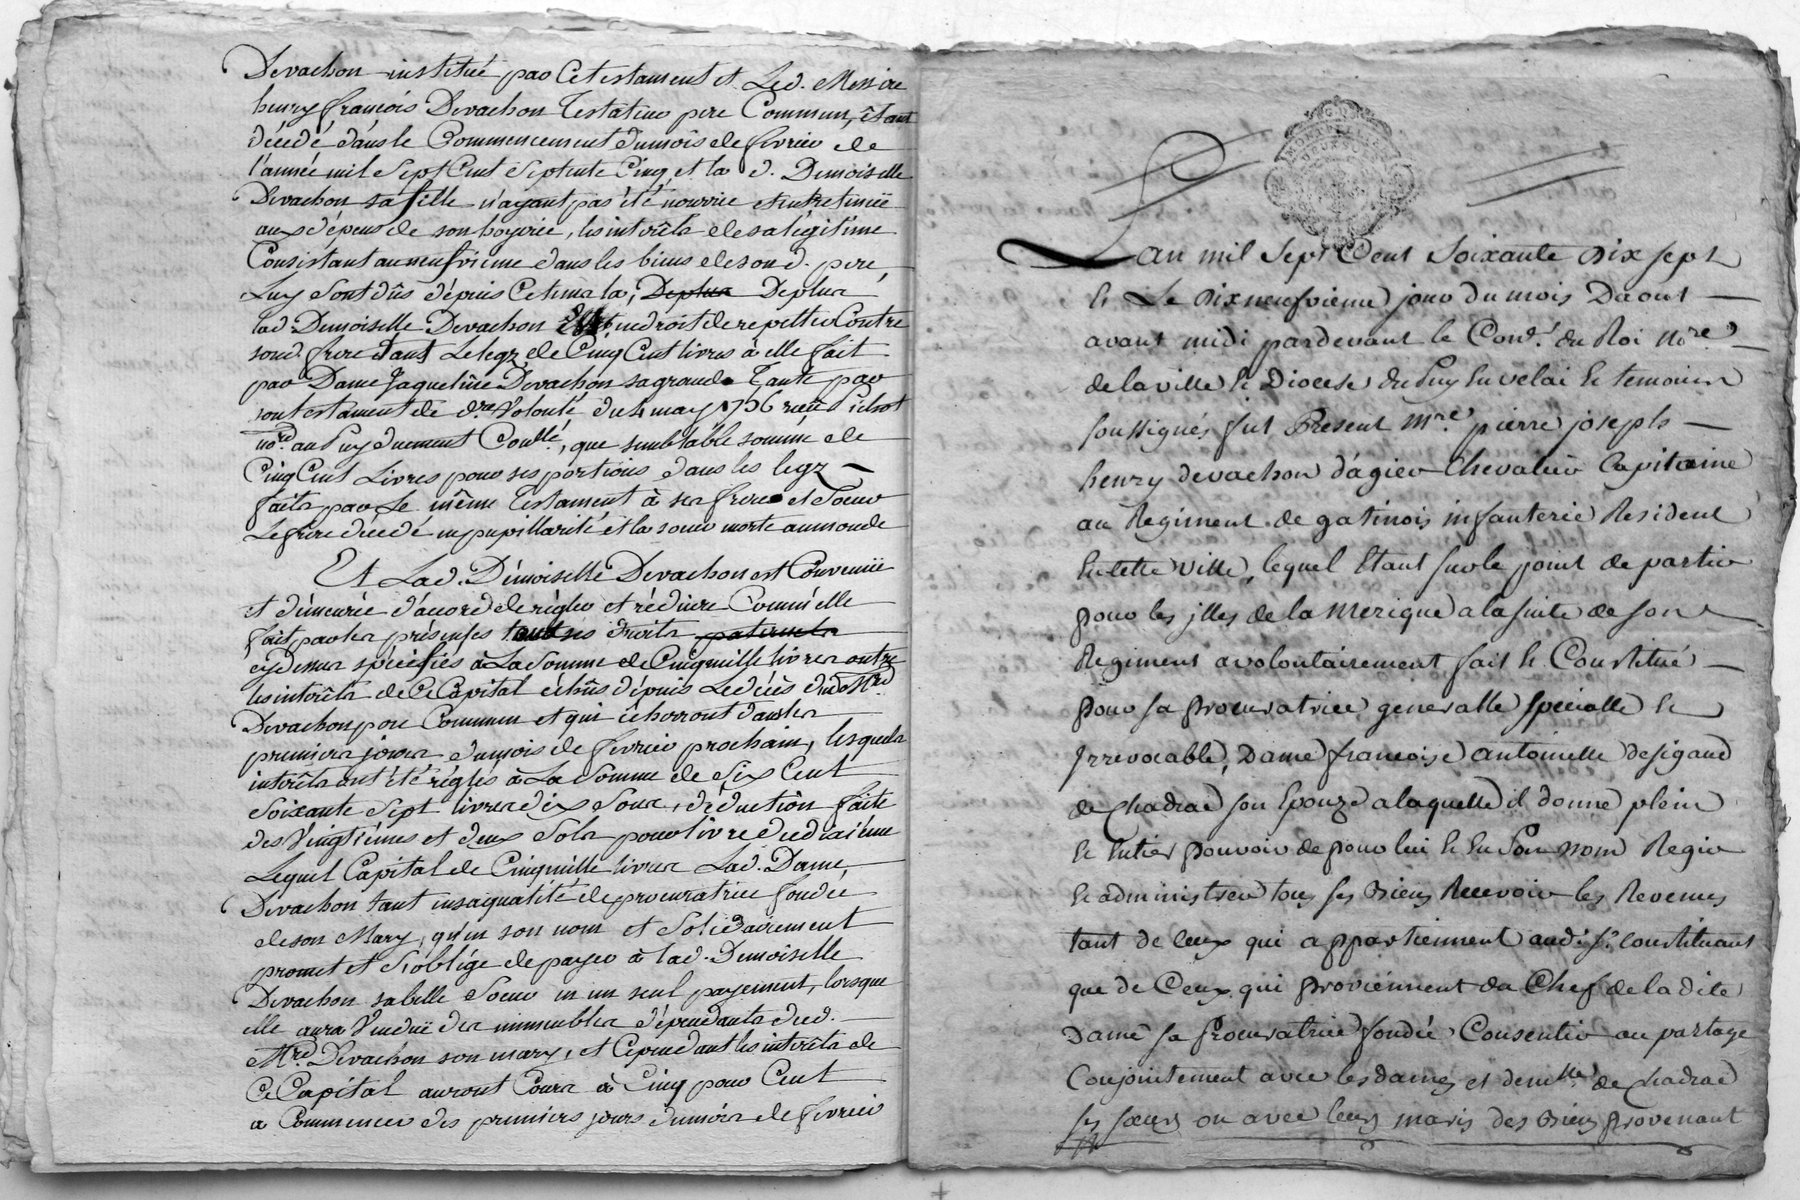 Devachon institué par Cetestament et Led. Messire
henry françois Devachon Testateur pere Commun, étant
décedé dans le Commencement dumois de fevrier de
l'année mil Sept Cent Septente Cinq et la d. Demoiselle
Devachon sa fille n'ayant pas été nourrie et entretenüe
aux dépens de son hoyrie, les intorêts de sa légitime
Consistant au neufvieme dans les biens de son d. pere,
Luy Sont dûs dépuis Cetems la, Deplus Deplus
lad. Demoiselle Devachon est en droit de repetter Contre
sond. frere tant Le legz de Cinq Cent livres à elle fait
par Dame Jaqueline Devachon sa grande Tante par
son testament de d.re Volonté du 4 may 1756 reçu Pichot
no.re au Puy duement Conllé, que semblable somme de
Cinq Cent Livres pour ses portions dans les legz
faits par Le même Testament à ses frere et Soeur
Le frere décedé en pupillarité et la soeur morte au monde
Et Lad. Démoiselle Devachon est Convenüe
et démeurée d'accord de régler et réduire Comm'elle
fait par les présentes tout ses droits paternels
cydessus spécifiés à La Somme de Cinq mille livres outre
les intorêts de Ce Capital échûs dépuis Le décès dud. M.re
Devachon pere Commun et qui échorront dans les
premiers jours dumois de fevrier prochain, lesquels
intorêts ont été réglés à La Somme de Six Cent
Soixante Sept livres dix Sous, déduction faite
des Vingtiémes et deux Sols pour livre du dixiéme
Lequel Capital de Cinq mille livres Lad. Dame,
Devachon tant en sa qualité de procuratrice fondée
de son Mary, qu'en son nom et Solidairement
promet et S'oblige de payer à lad. Demoiselle
Devachon sa belle Soeur en un seul payement, lorsque
elle aura Vendüe des immeubles dépendants dud.
M.re Devachon son mary, et Cependant les intorêts de
Ce Capital auront Cours à Cinq pour Cent
a Commencer des premiers jours du mois de fevrier
MONTPELLIER
Lan mil Sept Cent Soixante Dix sept
& Le Dix neufvieme jour du mois Daout
avant midi pardevant le Con.r du Roi No.re
de la ville & Diocese du Puy En velai & temoins
soussignés fut Present M.re pierre joseph
henry devachon d'agier Chevalier Capitaine
au Regiment de gatinois infanterie Resident
En cette ville, lequel Etant sur le point de partir
pour les jlles de la Merique a la suite de son
Regiment a volontairement fait & Constitué
pour sa procuratrice generalle specialle &
Irrevocable, Dame françoise antoinette de sigaud
de Chadrac son Epouze a laquelle il donne plein
& Entier pouvoir de pour lui & En Son nom Regir
& administrer tous ses Biens Recevoir les Revenus
tant de Ceux qui appartiennent aud. S.r Constituant
que de Ceux qui proviennent du Chef de la dite
Dame sa procuratrice fondée Consentir au partage
Conjointement avec les dames et dem.lle de Chadrac
ses soeurs ou avec leurs maris des Biens provenant